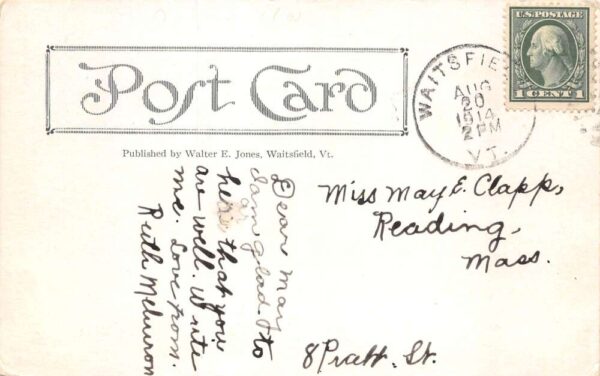 Post Card
Published by Walter E. Jones, Waitsfield, Vt.
U.S. POSTAGE
1 CENT 1
WAITSFIE
AUG
20
1914
2 PM
VT.
Dear May
I am glad to
hear that you
are well. Write
me. Love from.
Ruth
Miss May E. Clapp,
Reading,
Mass.
8 Pratt. St.